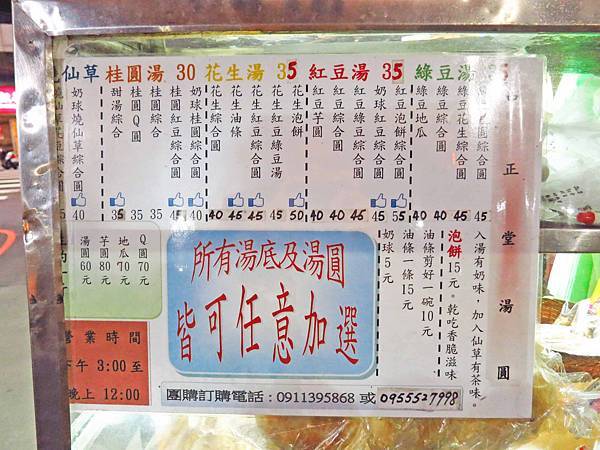 仙草 桂圓湯 30 花生湯 35 紅豆湯 35 綠豆湯
奶球燒仙草綜合圓
40
甜湯綜合
35
桂圓Q圓
35
桂圓綜合
35
桂圓紅豆綜合圓
45
奶球桂圓綜合圓
40
花生綜合圓
40
花生油條
45
花生紅豆綜合圓
45
花生紅豆綠豆湯
45
花生泡餅
50
紅豆芋圓
40
紅豆綜合圓
40
紅豆綠豆綜合圓
45
奶球紅豆綜合圓
45
紅豆泡餅綜合圓
55
綠豆地瓜
40
綠豆綜合圓
40
綠豆花生綜合圓
45
45
正堂湯圓
湯圓60元
芋圓80元
地瓜70元
Q圓70元
營業時間
下午 3:00 至
晚上 12:00
所有湯底及湯圓
皆可任意加選
奶球5元
油條一條15元
油條剪好一碗10元
泡餅15元。乾吃香脆滋味
入湯有奶味，加入仙草有茶味。
團購訂購電話：0911395868 或 0955527998